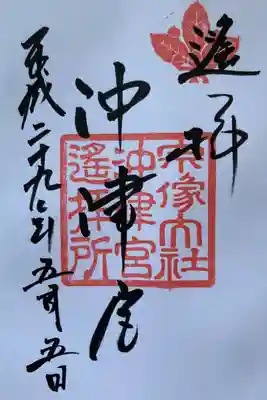 遙拝
沖津宮
平成二十九年五月五日
宗像大社
沖津宮
遙拝所